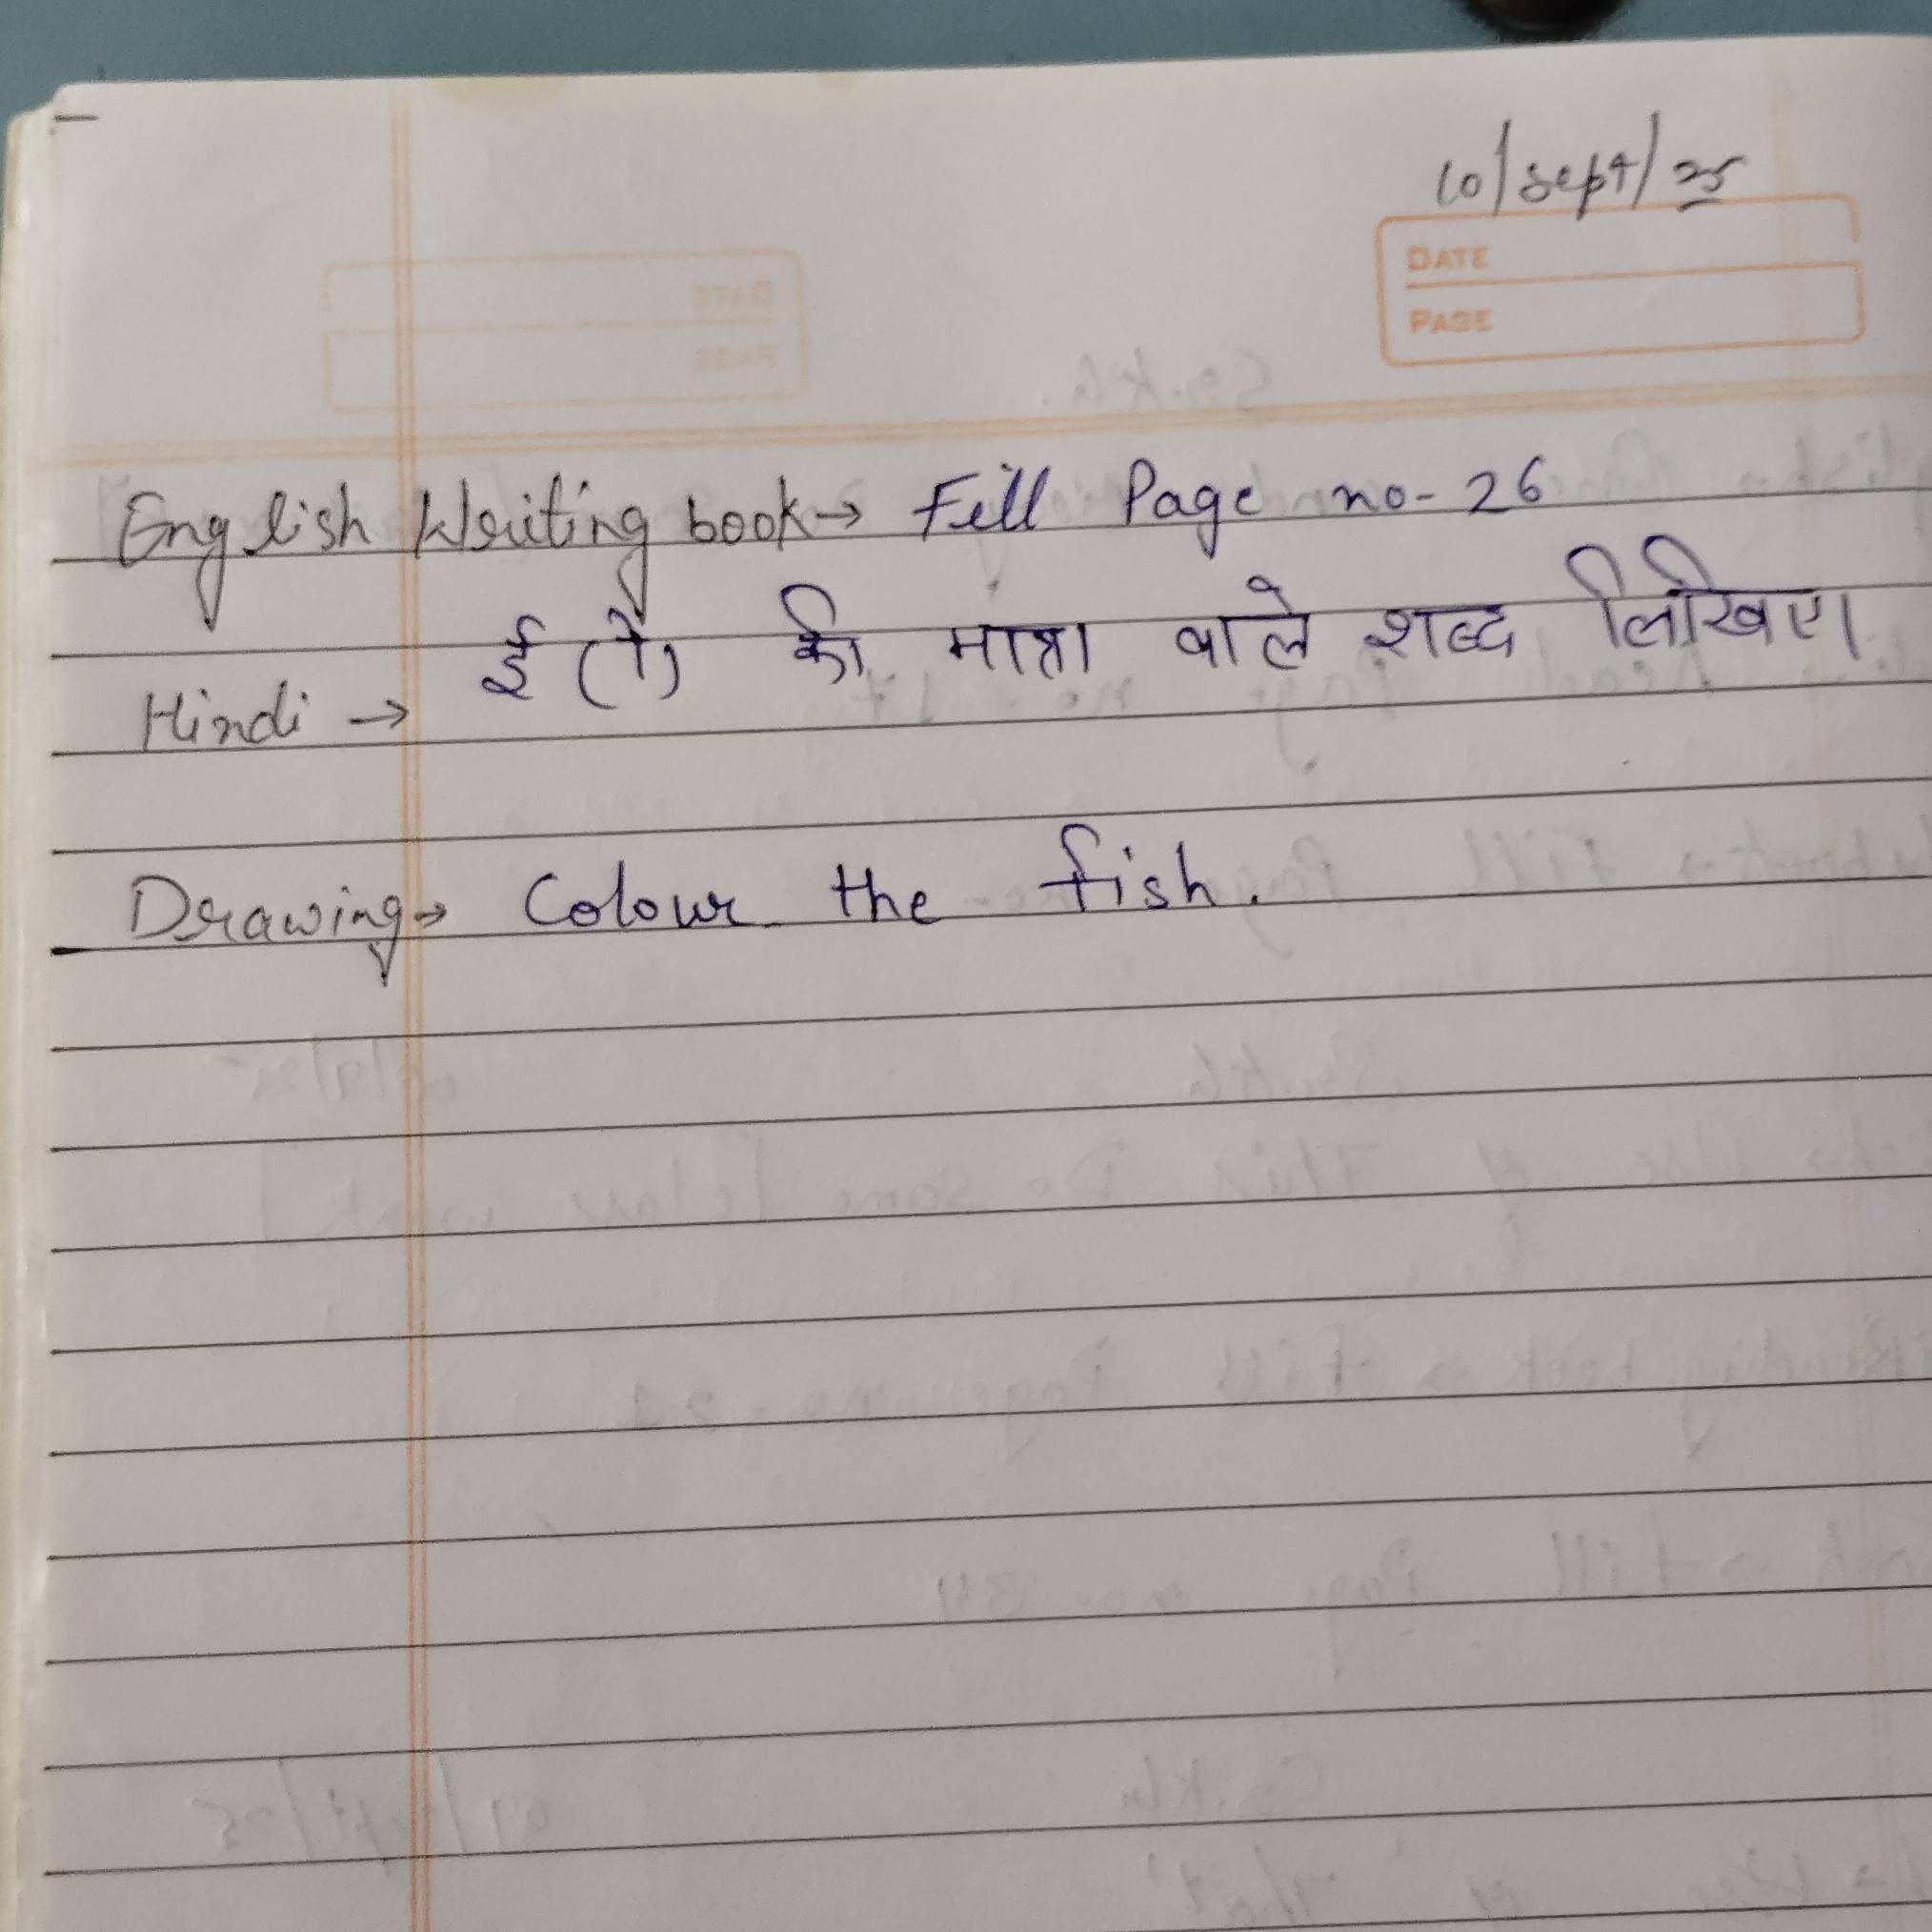 10/Sept/25
DATE
PAGE
English Writing book→ Fill Page no- 26
Hindi → ई (ी) की मात्रा वाले शब्द लिखिए।
Drawing→ Colour the fish.